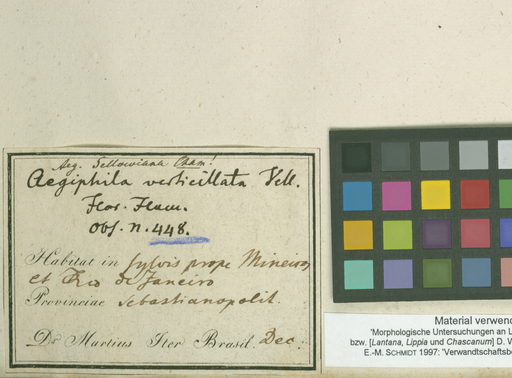 Aeg. Sellowiana Cham!
Aegiphila verticillata Vell.
Flor. Flum.
Obs. n. 448.
Habitat in sylvis prope Mineiros
et Rio de Janeiro
Provinciae Sebastianopolit.
Dr Martius Iter Brasil. Dec.
Material verwend
'Morphologische Untersuchungen an L
bzw. [Lantana, Lippia und Chascanum] D. V
E.-M. SCHMIDT 1997: 'Verwandtschaftsbe